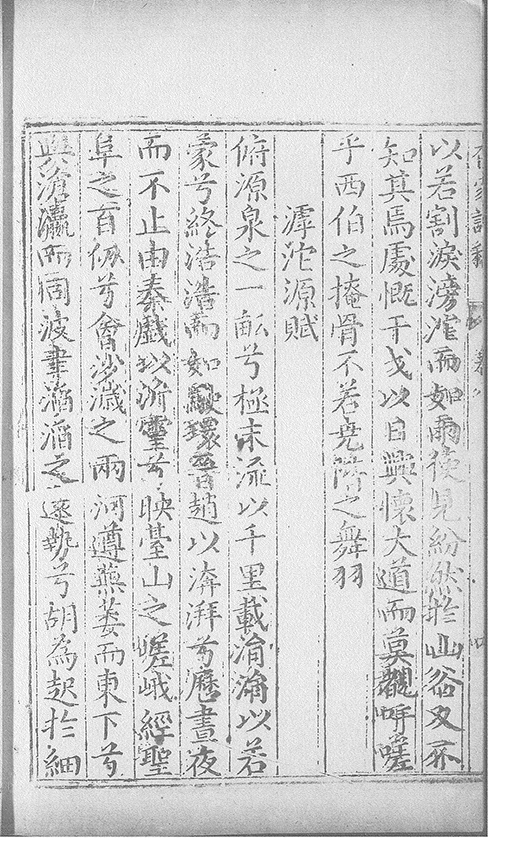 以若割淚滂涔而如雨後見紛然於山谷又不
知其焉處慨干戈以目興懷大道而莫觀呼嗟
乎西伯之掩骨不若堯階之舞羽
滹沱源賦
俯源泉之一畝兮極末流以千里載淯淯以若
蒙兮終浩浩而如駛環晉趙以渀湃兮歷晝夜
而不止由秦戲以泝靈兮映臺山之嵯峨經聖
阜之百仞兮會沙滅之兩河遵蕪蔞而東下兮
與滄瀛而同波聿滔滔之遂執兮胡為起於細